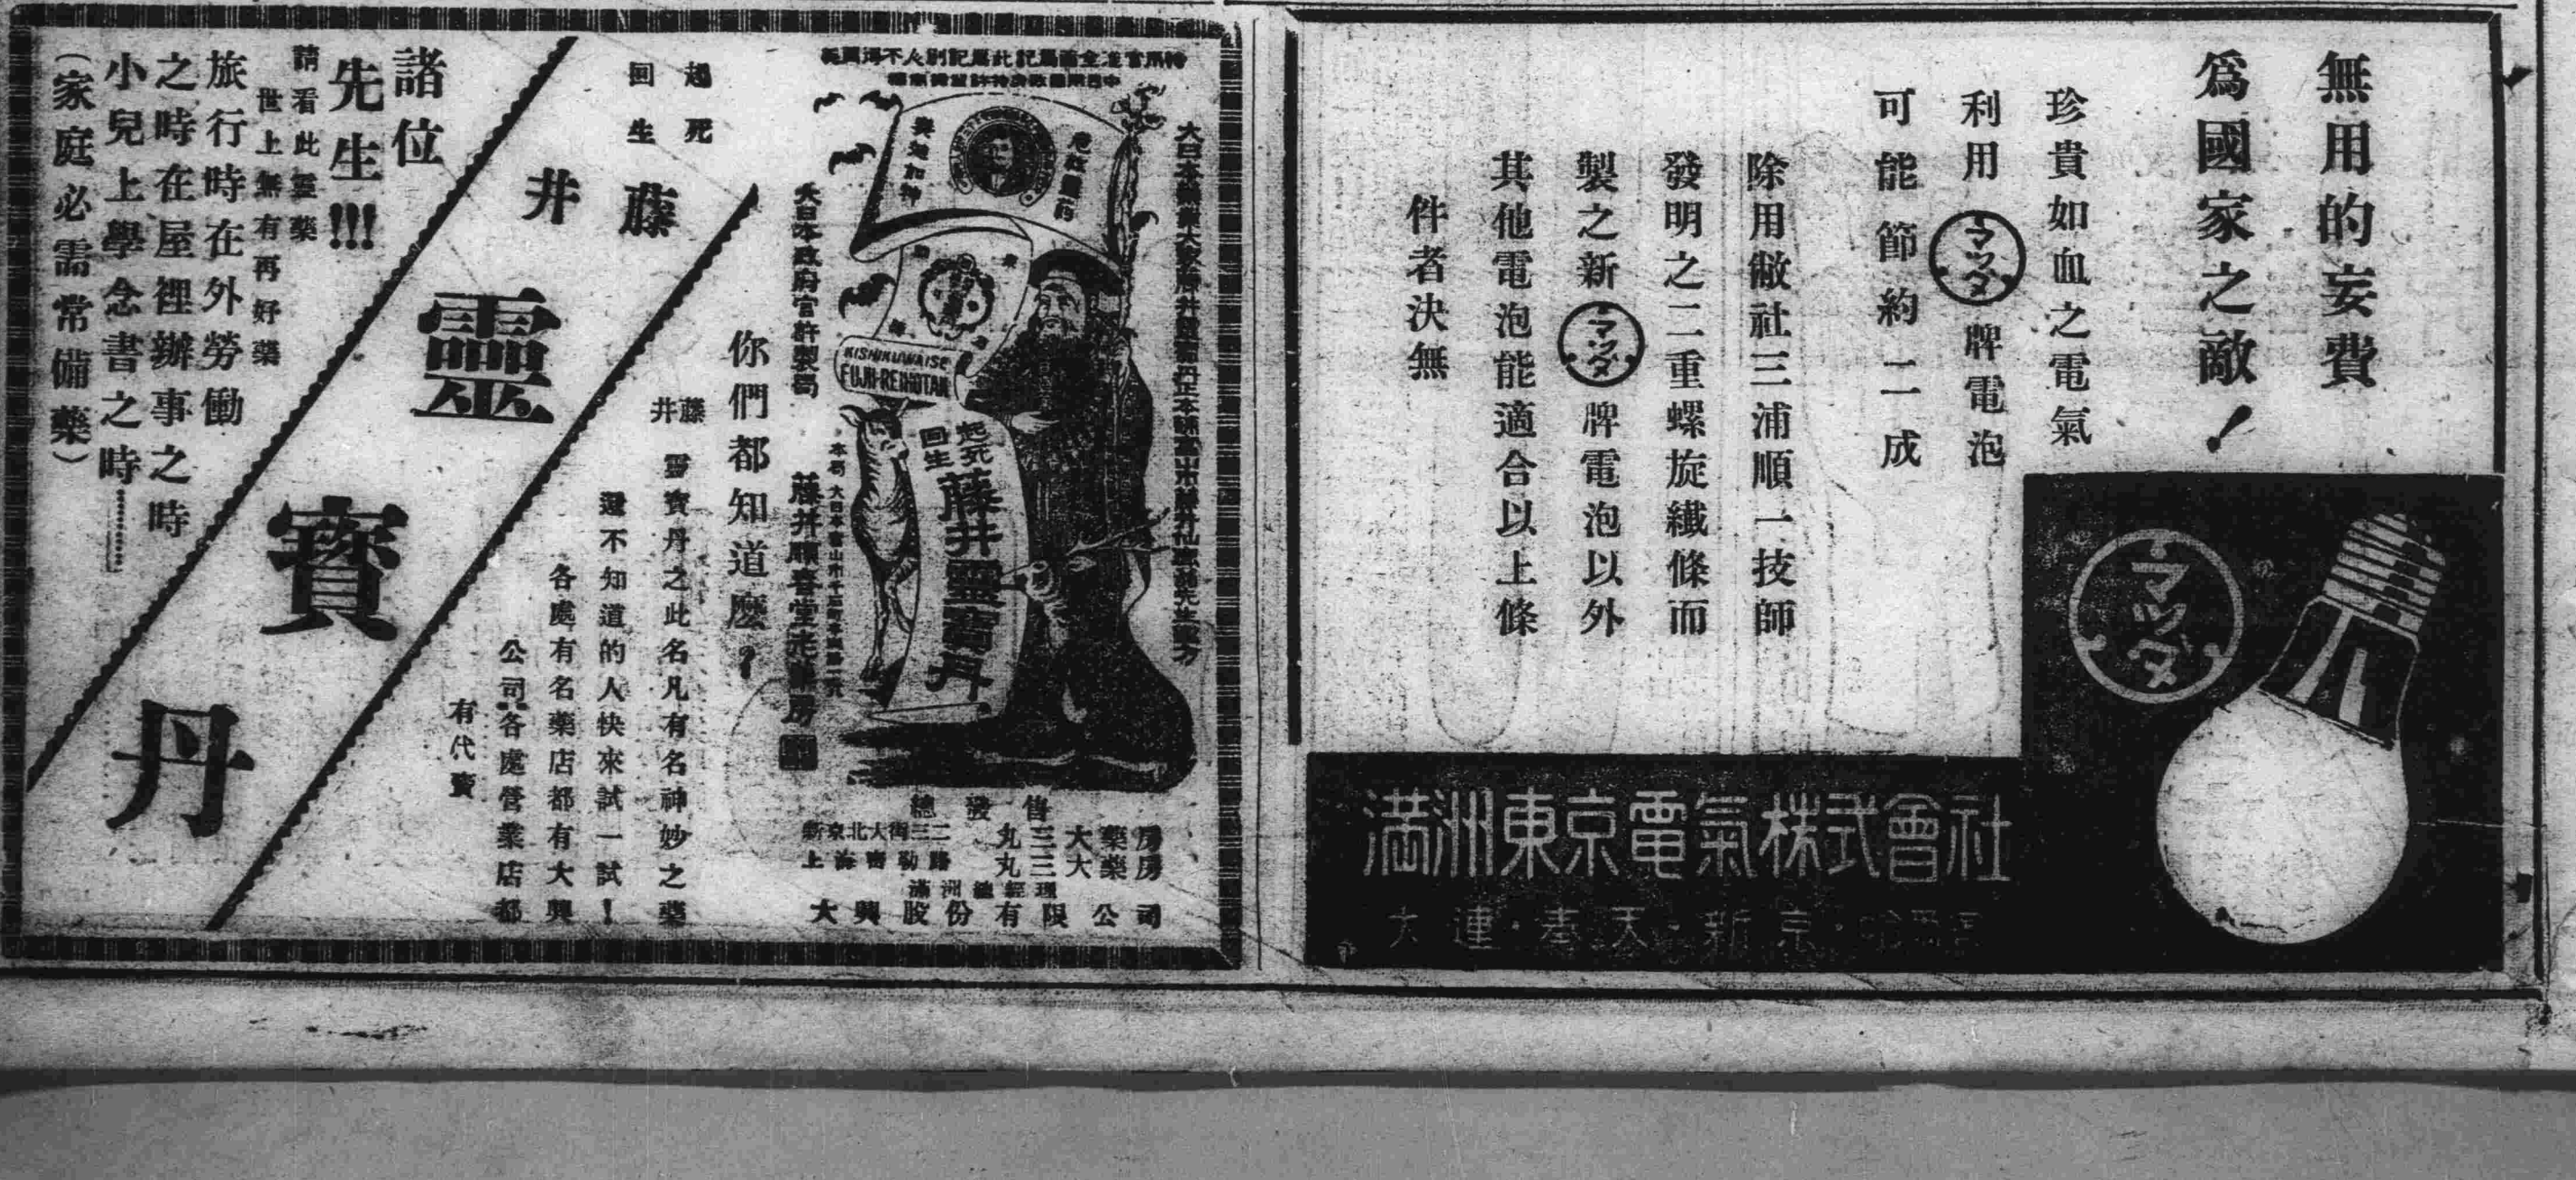 無用的妄費
爲國家之敵！
珍貴如血之電氣
利用マツダ牌電泡
可能節約二成
除用敝社三浦順一技師
發明之二重螺旋纖條而
製之新マツダ牌電泡以外
其他電泡能適合以上條
件者決無
マツダ
満洲東京電氣株式會社
大連·奉天·新京·
大日本政府官許製劑
藤井
KISHIKUWAISE
FUJII-REIHOTAN
起死
回生
藤井靈寶丹
總發售
新京北大街三二 丸三大藥房
上海密勒路 丸三大藥房
滿洲總經理
大興股份有限公司
你們都知道麽？
藤井
靈寶丹之此名凡有名神妙之藥
還不知道的人快來試一試！
各處有名藥店都有大興
公司各處營業店都
有代賣
起死
回生
藤井
靈寶丹
諸位
先生!!!
請看此靈藥
世上無有再好藥
旅行時在外勞働
之時在屋裡辦事之時
小兒上學念書之時
（家庭必需常備藥）